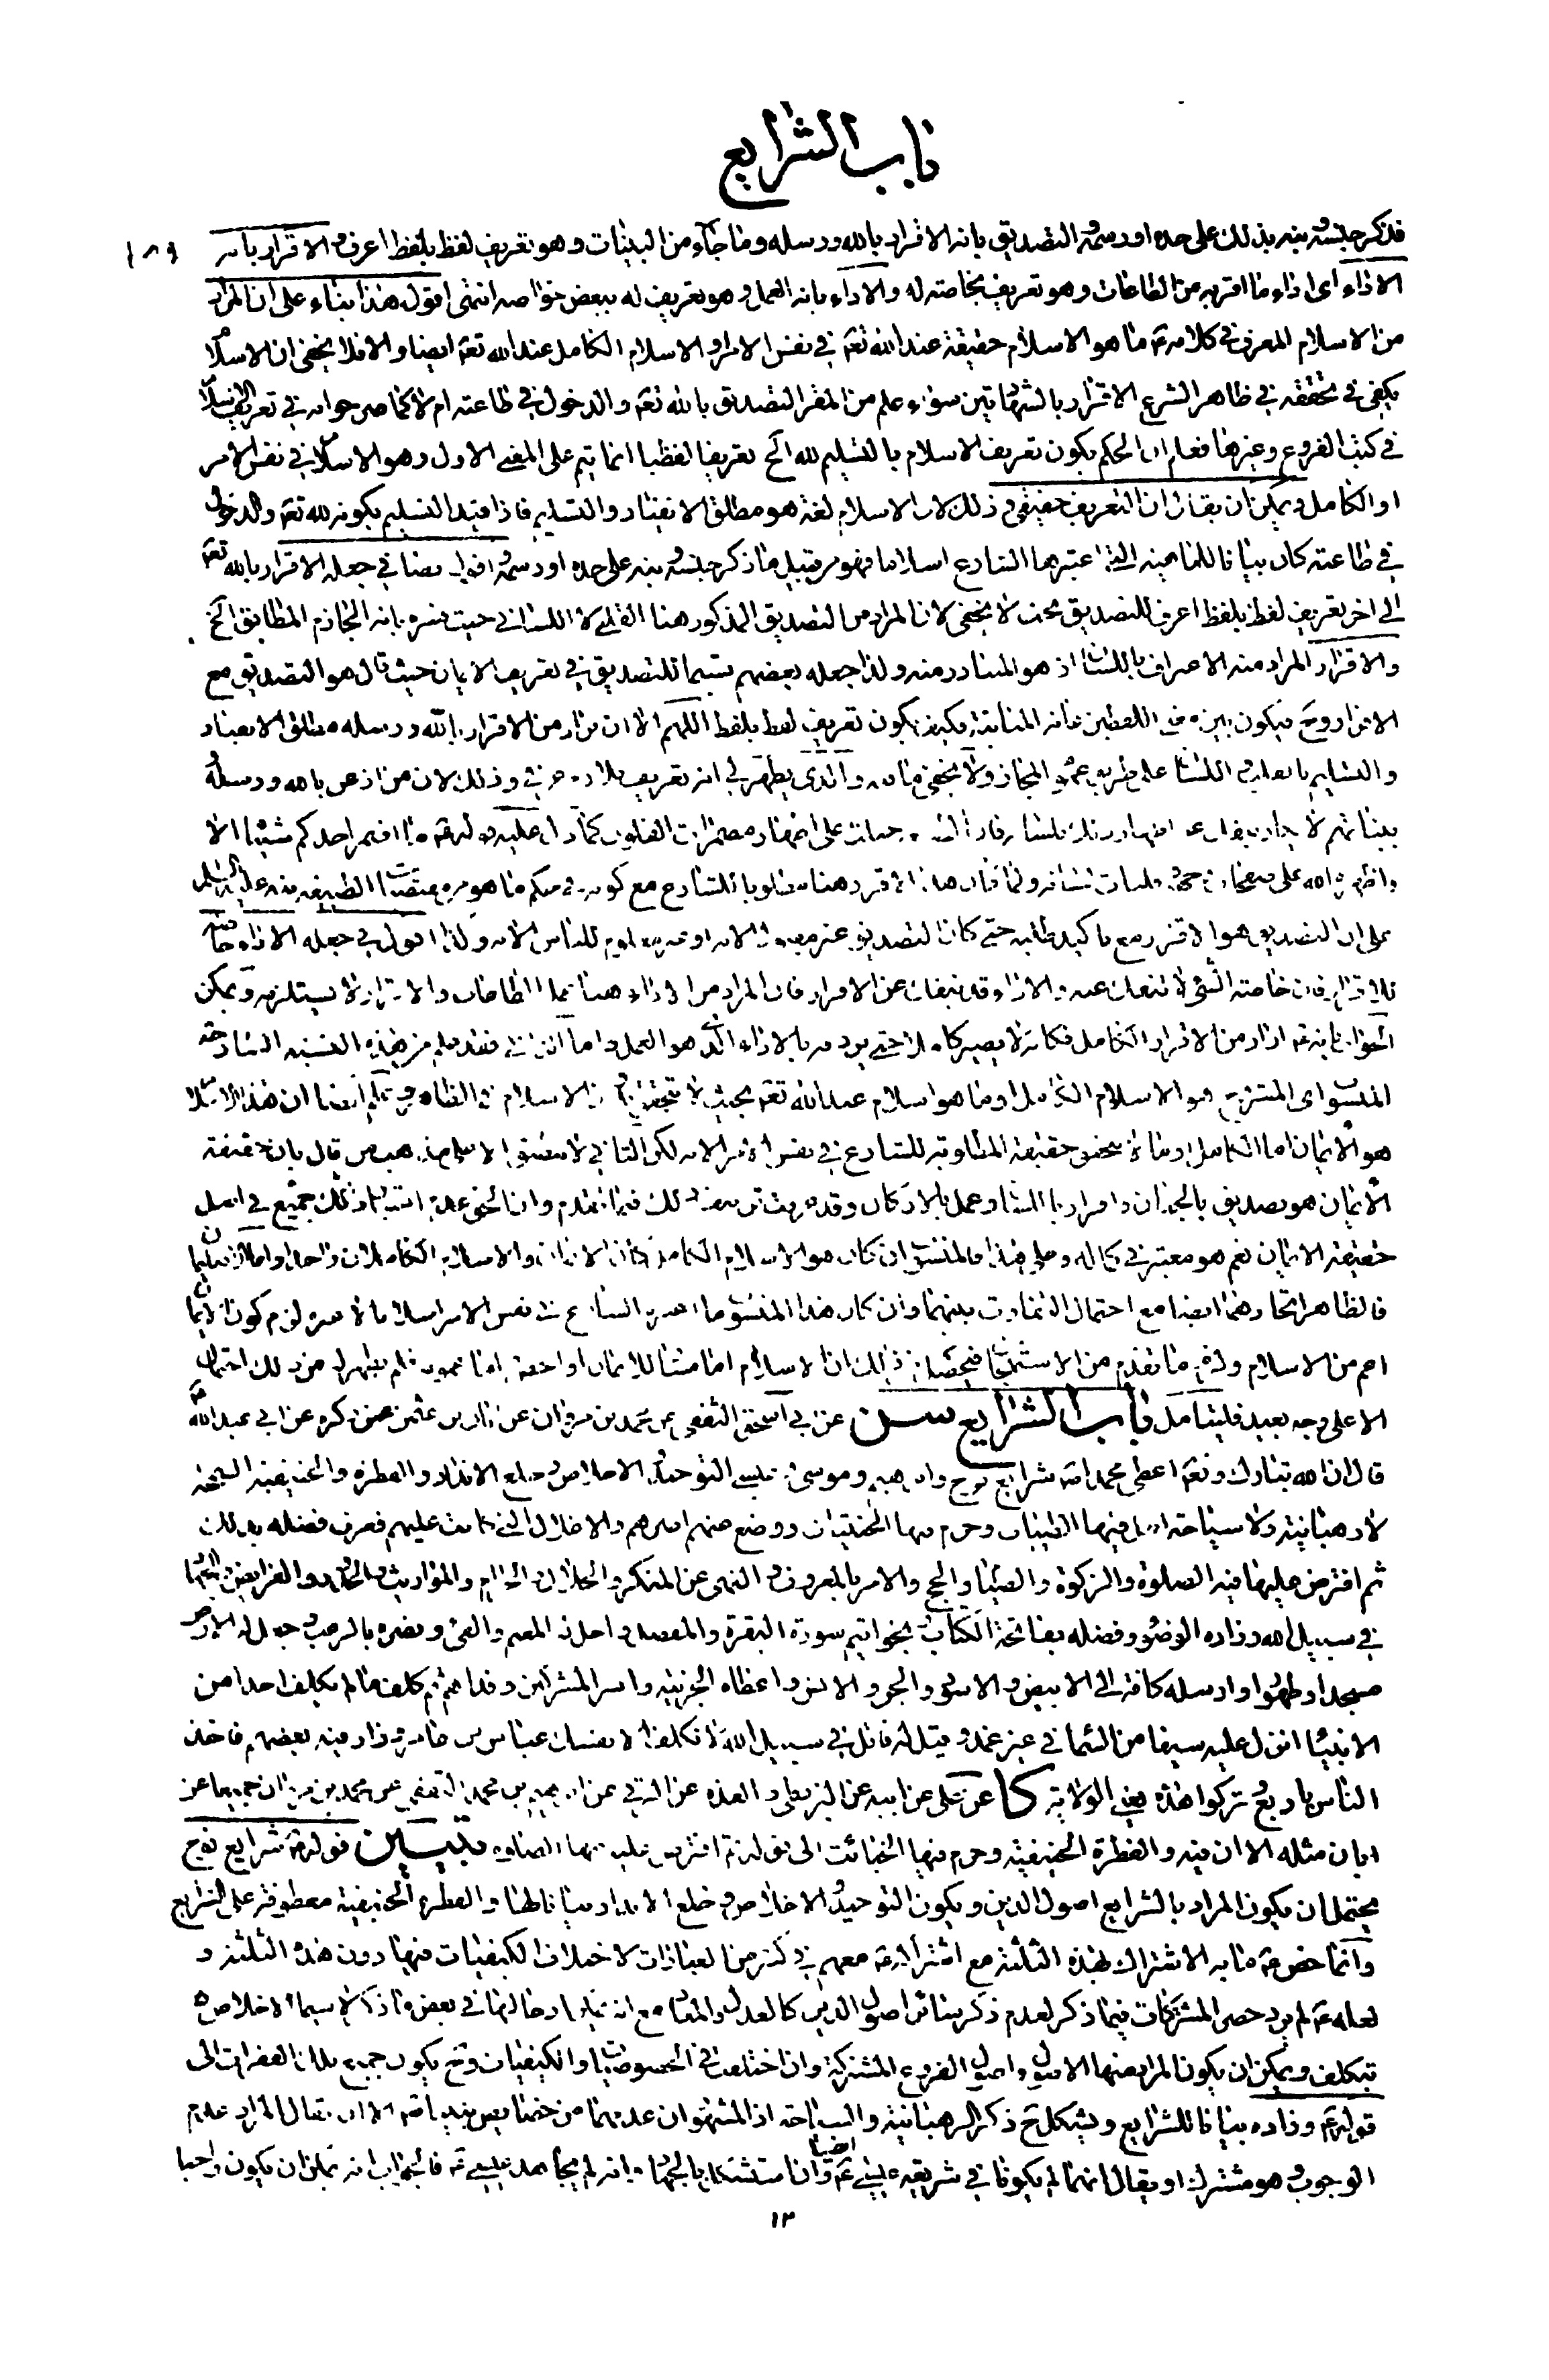 باب الشرايع
١٨٩
فذكر جنسه منبه بذلك على حده او رسمه التصديق بانه الاقرار بالله ورسله وما جاء من البينات وهو تعريف لفظ بلفظ اعرف والاقرار بانه
الاداء اى اداء ما اقر به من الطاعات وهو تعريف بخاصته له والاداء بانه العمل وهو تعريف له ببعض خواصه انتهى اقول هذا بناء على ان المراد
من الاسلام المعرف فى كلامه ع ما هو الاسلام حقيقة عند الله تعه فى نفس الامر او الاسلام الكامل عند الله تعه ايضا والا فلا يخفى ان الاسلام
يكفى فى تحققه فى ظاهر الشرع الاقرار بالشهادتين سواء علم من المقر التصديق بالله تعه والدخول فى طاعته ام لا كما صرحوا به فى تعريف الاسلام
فى كتب الفروع وغيرها فعلم ان الحكم بكون تعريف الاسلام بالتسليم لله الخ تعريفا لفظيا انما يتم على المعنى الاول وهو الاسلام فى نفس الامر
او الكامل ويمكن ان يقال ان التعريف حقيقى وذلك لان الاسلام لغة هو مطلق الانقياد والتسليم فاذا قيد التسليم بكونه لله تعه والدخول
فى طاعته كان بيانا للماهية التى اعتبرها الشارع اسلاما فهو من قبيل ما ذكر جنسه منبه على حده او رسمه اقول ايضا فى جعله الاقرار بالله تعه
الى اخر تعريف لفظ بلفظ اعرف للتصديق بحث لا يخفى لان المراد من التصديق المذكور هنا القلبى لا اللسانى حيث فسره بانه الجازم المطابق الخ
والاقرار المراد منه الاعتراف باللسان اذ هو المتبادر منه ولذا جعله بعضهم قسيما للتصديق فى تعريف الايمان حيث قال هو التصديق مع
الاقرار وح فيكون بين معنى اللفظين غاية المباينة فكيف يكون تعريف لفظ بلفظ اللهم الا ان يراد من الاقرار بالله ورسله مطلق الانقياد
والتسليم بالقلب و اللسان على طريق عموم المجاز ولا يخفى ما فيه والذى يظهر لى انه تعريف بلازم عرفى وذلك لان من اذعن بالله ورسله
على ان التصديق هو الاقرار مع تاكيد طلبه حتى كان التصديق غير مقبول الا به او غير معلوم للناس الا به ولنا اقول فى جعله الاداء خاصة
للاقرار فان خاصة الشئ لا تنفك عنه والاداء قد ينفك عن الاقرار فان المراد من الاداء هنا عمل الطاعات والاقرار لا يستلزمه ويمكن
الجواب بانه ع اراد من الاقرار الكامل فكانه لا يصير كاملا حتى يردفه بالاداء الذى هو العمل واما الثانى فقد علم من هذه النسبة الشارحة
المنسوب اى المشرح هو الاسلام الكامل او ما هو اسلام عند الله تعه بحيث لا يتحقق الاسلام فى الظاهر وعلم ايضا ان هذا الاسلام
هو الايمان اما الكامل او ما لا يتحقق حقيقته المطلوبة للشارع فى نفس الامر الا به لكن الثانى لا ينطبق الا على مذهب من قال بان حقيقة
الايمان هو تصديق بالجنان واقرار باللسان وعمل بالاركان وقد عرفت تزييف ذلك فيما تقدم وان الحق عدم اعتبار ذلك جميعه فى اصل
حقيقة الايمان نعم هو معتبر فى كماله وعلى هذا فالمنسوب ان كان هو الاسلام الكامل كان الايمان والاسلام الكاملان واحدا واما الاصليان
فالظاهر اتحادهما ايضا مع احتمال التفاوت بينهما وان كان هذا المنسوب ما اعتبره الشارع فى نفس الامر اسلاما لا غيره لزم كون الايمان
اعم من الاسلام ولازم ما تقدم من الاستهجان فيحصل من ذلك ان الاسلام اما مساو للايمان او اخص اما عمومه فلم يظهر له من ذلك احتمال
الا على وجه بعيد فليتامل باب الشرايع سن عن ابى اسحق الثقفى عن محمد بن مروان عن ابان بن عثمن عمن ذكره عن ابى عبد الله ع
قال ان الله تبارك وتعه اعطى محمدا ص شرايع نوح وابرهيم وموسى وعيسى التوحيد والاخلاص وخلع الانداد والفطرة والحنيفية السمحة
لا رهبانية ولا سياحة احل فيها الطيبات وحرم فيها الخبيثات ووضع عنهم اصرهم والاغلال التى كانت عليهم فعرف فضله بذلك
ثم افترض عليها فيه الصلوة والزكوة والصيام والحج والامر بالمعروف والنهى عن المنكر والحلال والحرام والمواريث والحدود والفرايض والجهاد
فى سبيل الله وزاده الوضوء وفضله بفاتحة الكتاب بخواتيم سورة البقرة والمفصل واحل له المغنم والفئ ونصره بالرعب وجعل له الارض
مسجدا وطهورا وارسله كافة الى الابيض والاسود والجن والانس واعطاه الجزية واسر المشركين وفداهم ثم كلف ما لم يكلف احدا من
الانبياء انزل عليه سيفا من السماء فى غير غمد وقيل له قاتل فى سبيل الله لا تكلف الا نفسك عباس بن عامر وزاد فيه بعضهم فاخذ
الناس باربع وتركوا هذه يعنى الولاية كا عن على عن ابيه عن البزنطى والعدة عن البرقى عن ابرهيم بن محمد الثقفى عن محمد بن مروان جميعا عن
ابان مثله الا ان فيه والفطرة الحنيفية وحرم فيها الخبائث الى قوله ثم افترض عليه فيها الصلوة تبيين قوله ع شرايع نوح
يحتمل ان يكون المراد بالشرايع اصول الدين ويكون التوحيد والاخلاص وخلع الانداد بيانا لها والفطرة الحنيفية معطوفة على الشرايع
وانما خص ع ما به الاشتراك بهذه الثلثة مع اشتراكه ع معهم فى كثير من العبادات لاختلاف الكيفيات فيها دون هذه الثلثة و
لعله ع لم يرد حصر المشتركات فيما ذكر لعدم ذكر سائر اصول الدين كالعدل والمعاد مع انه يمكن ادخالها فى بعض ما ذكر لا سيما الاخلاص
بتكلف ويمكن ان يكون المراد منها الاصول واصول الفروع المشتركة وان اختلفت فى الخصوصيات والكيفيات وح يكون جميع تلك الفقرات الى
قوله ع وزاده بيانا للشرايع ويشكل ح ذكر الرهبانية والسياحة اذ المشهور ان عدمهما من خصايص نبينا ص الا ان يقال المراد عدم
الوجوب وهو مشترك او يقال انهما لم يكونا فى شريعة عيسى ع ايضا وان استشكل بالجهاد وانه لم يجاهد عيسى ع فالجواب انه يمكن ان يكون واجبا
١٣